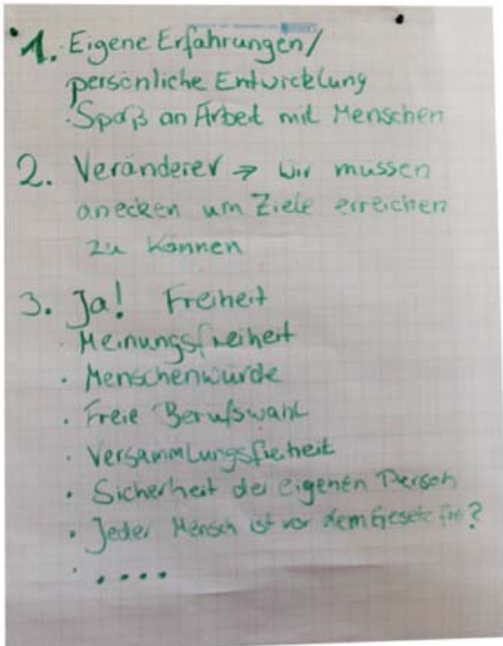 1. · Eigene Erfahrungen/
persönliche Entwicklung
· Spaß an Arbeit mit Menschen
2. Veränderer → Wir müssen
anecken um Ziele erreichen
zu können
3. Ja! Freiheit
· Meinungsfreiheit
· Menschenwürde
· Freie Berufswahl
· Versammlungsfreiheit
· Sicherheit der eigenen Person
· Jeder Mensch ist vor dem Gesetz frei?
· ....